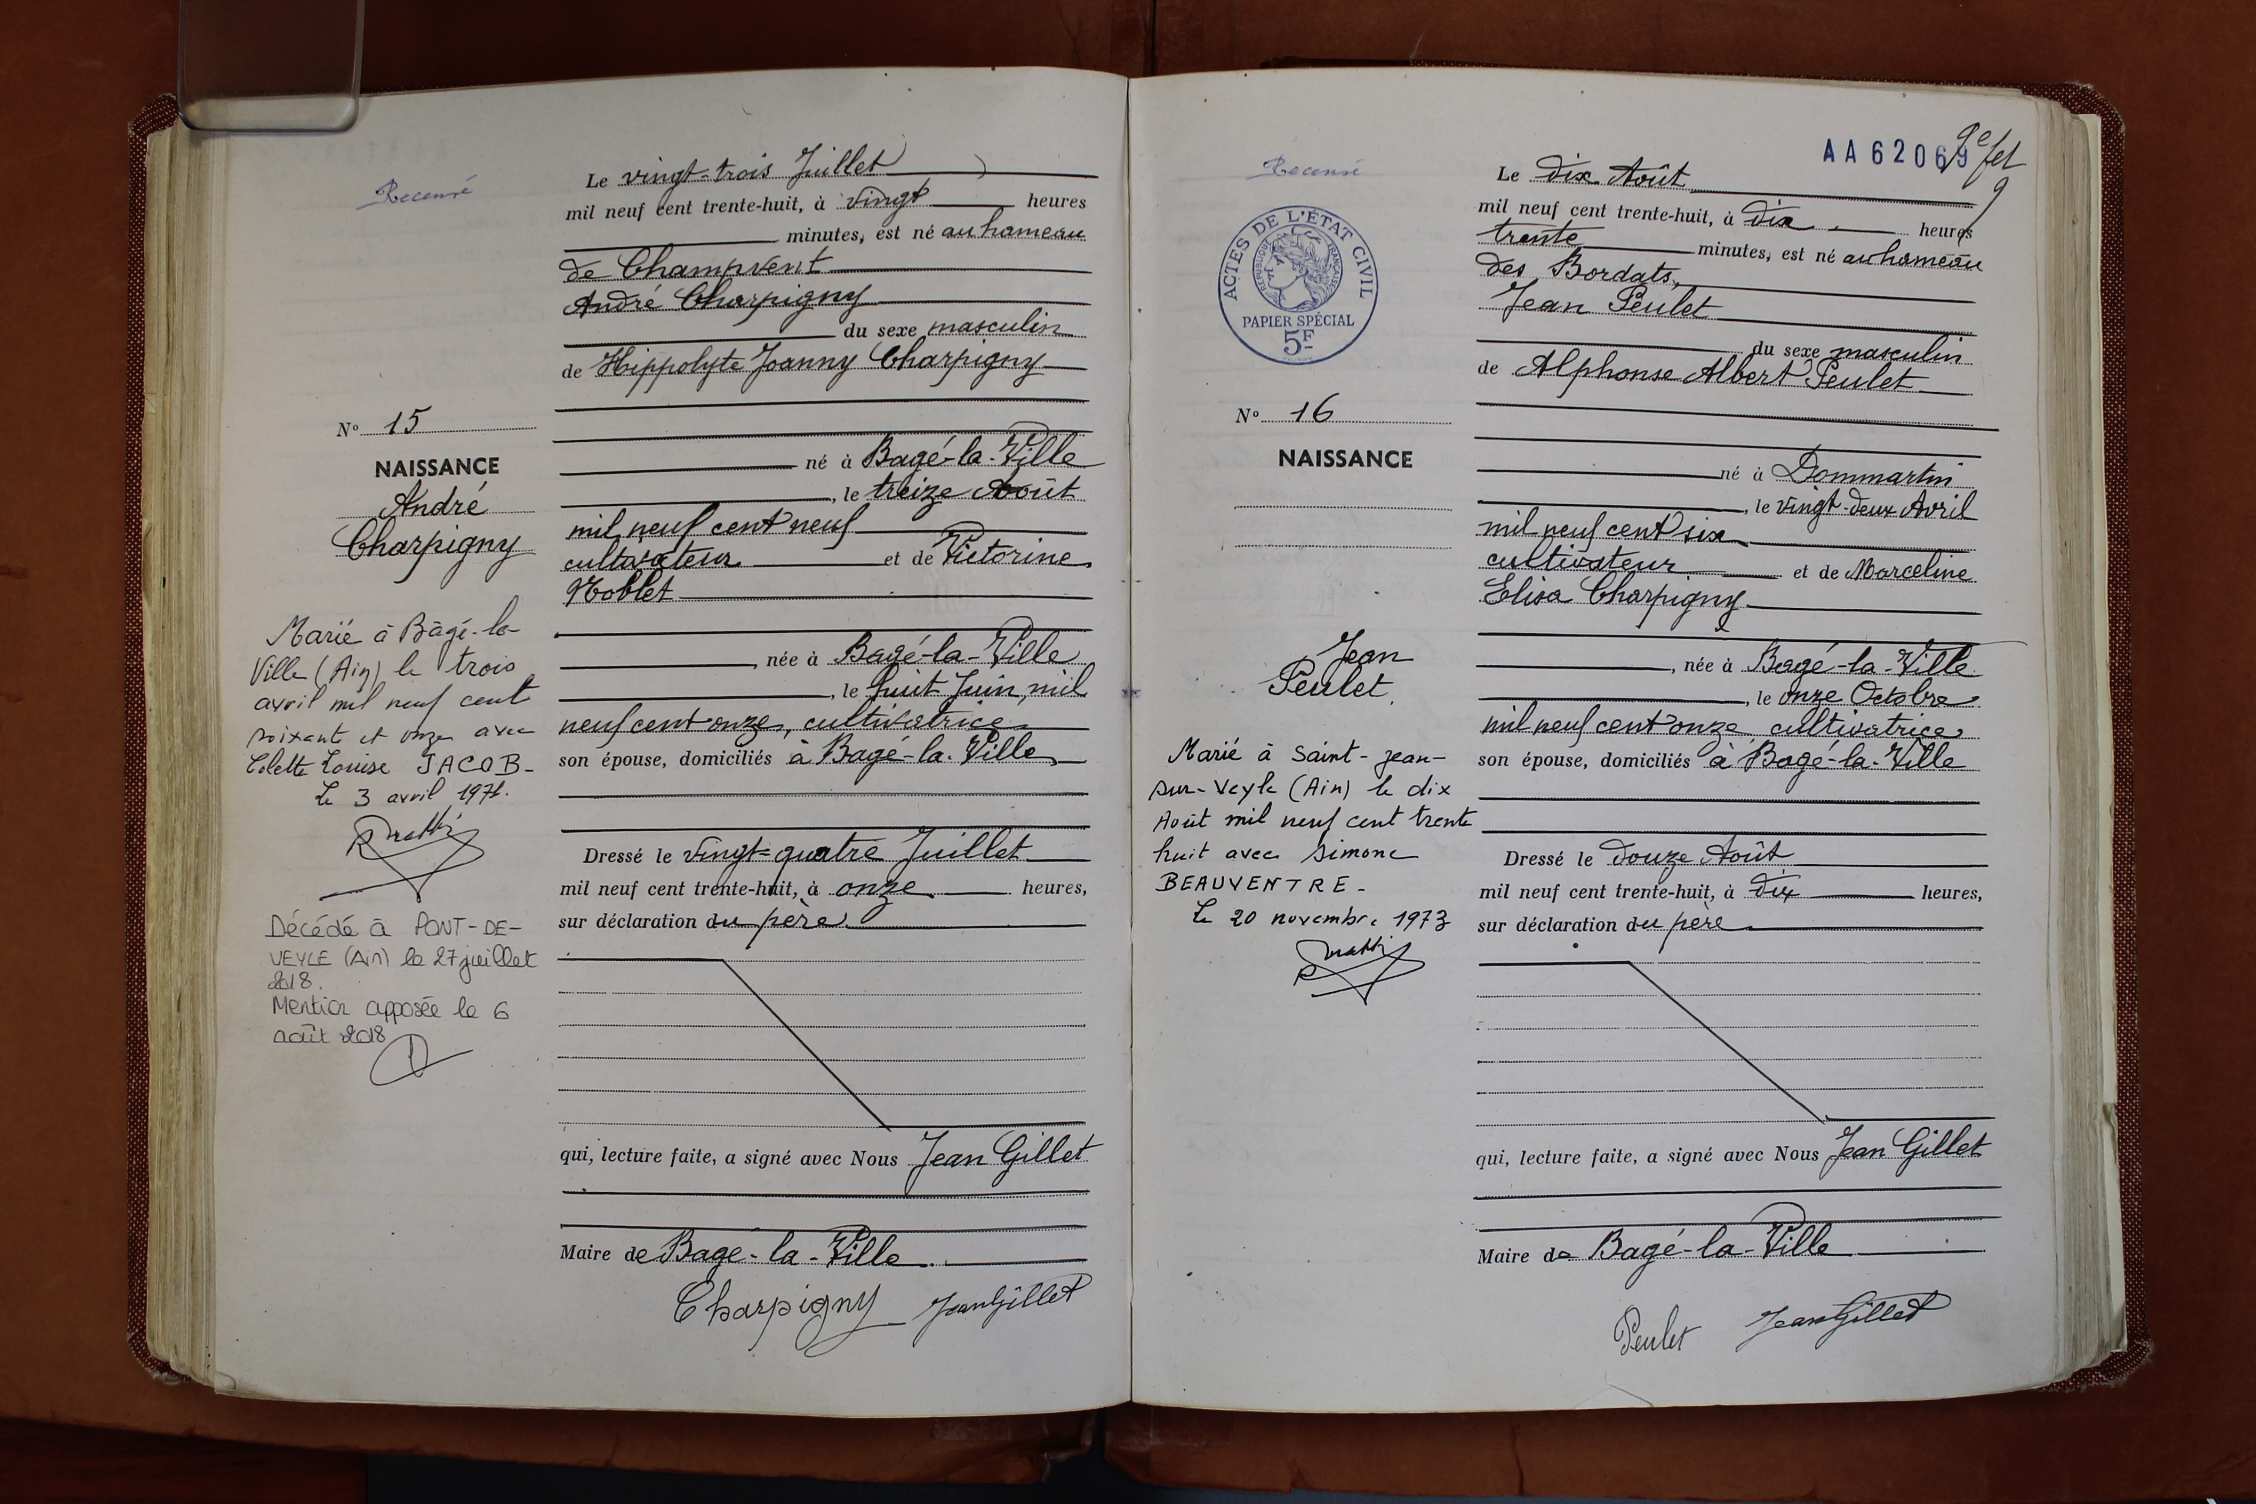 Recensé
Le vingt-trois Juillet
mil neuf cent trente-huit, à vingt heures
minutes, est né au hameau
de Champvent
André Charpigny
du sexe masculin
de Hippolyte Joanny Charpigny
né à Bagé-la-Ville
, le treize Août
mil neuf cent neuf
cultivateur et de Victorine
Noblet
, née à Bagé-la-Ville
, le huit Juin, mil
neuf cent onze, cultivatrice
son épouse, domiciliés à Bagé-la-Ville
Dressé le vingt-quatre Juillet
mil neuf cent trente-huit, à onze heures,
sur déclaration du père
qui, lecture faite, a signé avec Nous Jean Gillet
Maire de Bagé-la-Ville
Charpigny Jean Gillet
No 15
NAISSANCE
André
Charpigny
Marié à Bâgé-la-
Ville (Ain) le trois
avril mil neuf cent
soixant et onze avec
Colette Louise JACOB-
Le 3 avril 1971.
Décédé à PONT-DE-
VEYLE (Ain) le 27 juillet
2018.
Mention apposée le 6
août 2018
Recensé
AA62069
9e fet
9
ACTES DE L'ÉTAT CIVIL
RÉPUBLIQUE FRANÇAISE
PAPIER SPÉCIAL
5F
Le dix Août
mil neuf cent trente-huit, à dix heures
trente minutes, est né au hameau
des Bordats,
Jean Peulet
du sexe masculin
de Alphonse Albert Peulet
né à Dommartin
, le vingt-deux Avril
mil neuf cent six
cultivateur et de Marceline
Elisa Charpigny
, née à Bagé-la-Ville
, le onze Octobre
mil neuf cent onze cultivatrice
son épouse, domiciliés à Bagé-la-Ville
Dressé le douze Août
mil neuf cent trente-huit, à dix heures,
sur déclaration du père
qui, lecture faite, a signé avec Nous Jean Gillet
Maire de Bagé-la-Ville
Peulet Jean Gillet
No 16
NAISSANCE
Jean
Peulet
Marié à Saint-Jean-
sur-Veyle (Ain) le dix
Août mil neuf cent trente
huit avec Simone
BEAUVENTRE-
Le 20 novembre 1973